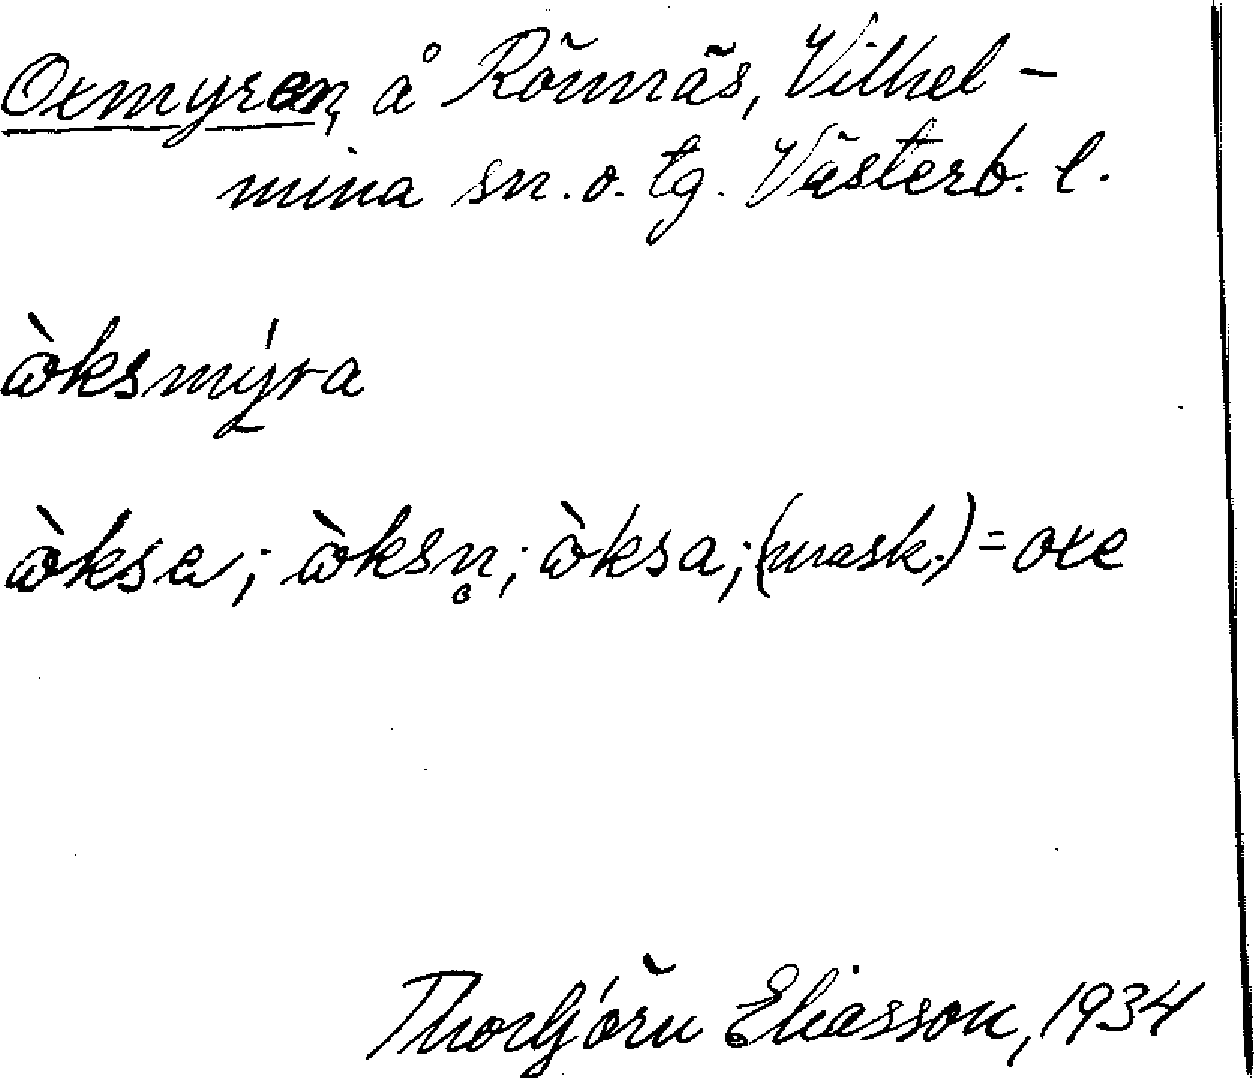 Oxmyren, å Rönnäs, Vilhel-
mina sn. o. tg. Västerb. l.
ὼksmýra
ὼksa; ὼksn̥; ὼksa; (mask.) = oxe
Thorbjörn Eliasson, 1934